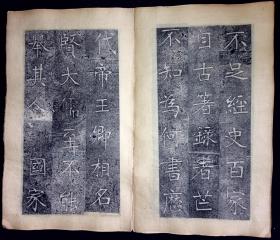 不足經史百家
目古著錄者芒
不知為何書應
代帝王卿相名
賢大儒至不能
舉其今 國家